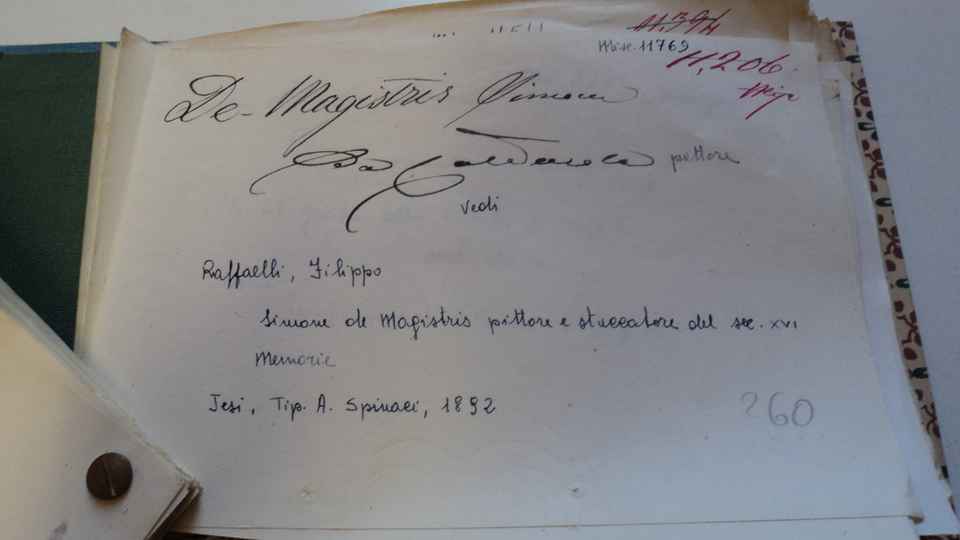 Misc. 11769
11,206.
De-Magistris Simone
Da Caldarola pittore
Vedi
Raffaelli, Filippo
Simone de Magistris pittore e stuccatore del sec. XVI
Memorie
Jesi, Tip. A. Spinaci, 1892
260